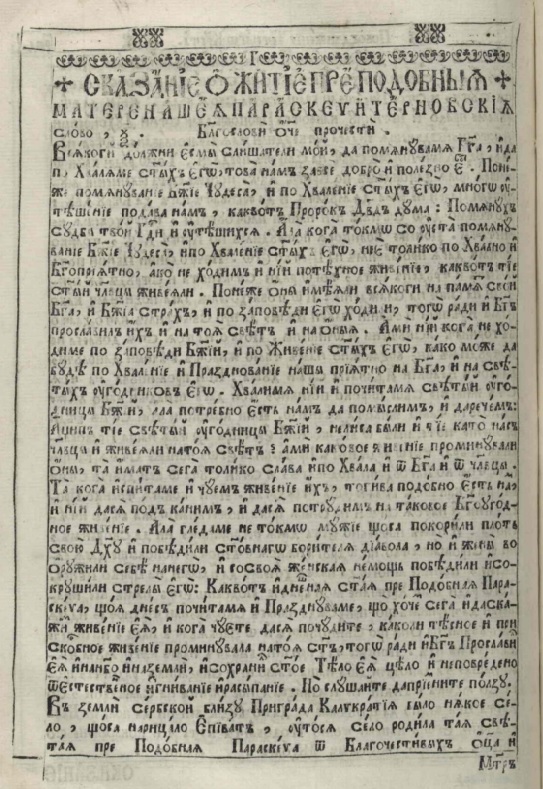 Г
СКАЗА́НІЕ Ѡ҆ ЖИТІЀ ПРЕПОДО́БНЫѦ
МАТЕРЕ НАШЕѦ ПАРАСКЕѴЙ ТЕРНОВСКІѦ
сло́во, у҃. Бл҃гослови̏ ѻ҆́ч҃е прочести̏.
Всѧ́когѝ до́лжни е҆смы̀ слы́шатели мо́и, да помѧнува́мѧ Гд҇а, и҆да
п, Хвалѧме ст҃ы́хъ е҆гѡ̀, това̀ на́мъ за́еве добрѡ̀ и҆ поле́зно е҆ст. Пони́
же помѧнува́ние Бж҃іе Чꙋдеса̀, и҆ по Хвале́ние ст҃ы́хъ е҆гѡ̀, мно́гѡ ѹ҆
тѣше́ніе пода́ва на́мъ, ка́квотъ Проро́къ Дв҃дъ дꙋма: Помѧнꙋ́хъ
сꙋдбы̀ твоѧ̀ Гд҇и и҆ ꙋ҆тѣши́хсѧ. А҆ла̀ кога̀ то́кмѡ со ꙋ҆ста̀ помѧнꙋ
ва́ние Бж҃іе Чꙋдеса̀, и҆по Хвале́ніе ст҃ы́хъ е҆гѡ̀, не то́лико по Хва́лно и҆
Бг҃опрїѧ́тно, а҆ко не хо́димъ и҆ ні́й поте́хное живѣ́ние, ка́квотъ ті́е
ст҃ы́й чл҃вцы живеѧ́ли. Пони́же ѻ҆ні̀ и҆мѣ́ѧли всѧ́коги на па́мѧ свой
Бг҃а, и҆ Бж҃іѧ стра́хъ, и҆ по за́повѣди е҆гѡ̀ ходи́ли, тогѡ̀ ра́ди и҆ Бг҃ъ
просла́вилъ и҆́хъ и҆ на то́ѧ свѣ́тъ и҆ на ѻ҆́ныѧ. А҆ми̏ ні́й кога̀, не хо́
диме по за́повѣди Бж҃їй, и҆ по Живе́ние ст҃ы́хъ е҆гѡ̀, ка́ко мо́же да
бꙋ́дѣ по Хвале́ние и҆ Пра́знование на́шы прїѧ́тно на Бг҃а, и҆ на свѣ
ты́хъ ꙋ҆го́дниковъ е҆гѡ̀. Хвали́маѧ ні́й и҆ почита́маѧ свѣты́й ꙋ҆го́
дницы Бж҃їи, а҆ла̀ потре́бно е҆́сть на́мъ да помы́слимъ, и҆ даре́чемъ:
А҆́ципъ ті́е свѣты́й ꙋ҆го́дницы Бж҃їи, не́лиса бы́ли и҆ ті́е като̀ на́съ
чл҃вцы и҆ живеѧ́ли на то́ѧ свѣ́тъ; а҆ми̏ ка́ковое живѣ́ние проминꙋва́ли
ѻ҆ни́, та̀ и҆́матъ сега̀ толи́ко сла́ва и҆по Хвала̀ и҆ ѿ Бг҃а и҆ ѿ чл҃вцы.
Та̀ кога̀ и҆спита́ме и҆ чꙋ́емъ живе́ние и҆́хъ, тоги́ва подо́бно е҆́сть на,
и҆ ні́й да́сѧ под ка́нимъ, и҆ да́сѧ потрꙋ́димъ на та́ковое Бг҃оꙋ҆го́д
ное живѣ́ние. А҆ла̀ гле́даме не то́кмѡ мꙋжіе що́са покори́ли пло́ть
свою̀ Дх҃ꙋ и҆ побѣди́ли сто́внагѡ бори́телѧ дїа́вола, но̀ и҆ жены̀ во
ѻ҆рꙋжи́ли себѐ на него̀, и҆ сосвоѧ̀ же́нскаѧ не́мощь побѣди́ли и҆со
крꙋши́ли стрелы̀ е҆гѡ̀: Ка́квотъ и҆ днѣ́шнаѧ ст҃а́ѧ пре Подо́бнаѧ Пара
скѵ́а, що́ѧ дне́съ почита́маѧ и҆ Пра́зднꙋваме, що хо́че сега̀ и҆ даска
жи̏ живе́ние е҆ѧ̀, и҆ кога̀ чꙋ́ете да́сѧ почꙋ́дите, како́ли тѣ́сное и҆ при
ско́бное живе́ние проминꙋва́ла на то́ѧ ст҃ъ, тогѡ̀ ра́ди и҆ Бг҃ъ Просла́ви
е҆ѧ̀ и҆ на не́бо и҆ на земли̏, и҆ сохрани̏ ст҃о́е Тѣ́ло е҆ѧ̀ цѣ́ло и҆ неповреде́но
ѿ е҆сте́ственое и҆гнива́ние и҆ расы́пание. Но̀ слꙋ́шайте да прїи́мите по́лзꙋ.
Въ земли̏ Се́рбской бли́зꙋ При гра́да Каликра́тїа бы́ло нѣ́кое се
ло̀, що́са нарица́ло Е҆піва́тъ, ѹ҆ то́сѧ село̀ роди́ла та́ѧ свѣ
та́ѧ пре Подо́бнаѧ Параске́ѵа ѿ Благочести́выхъ ѻ҆ц҃а̀ и҆
Мт҃ръ